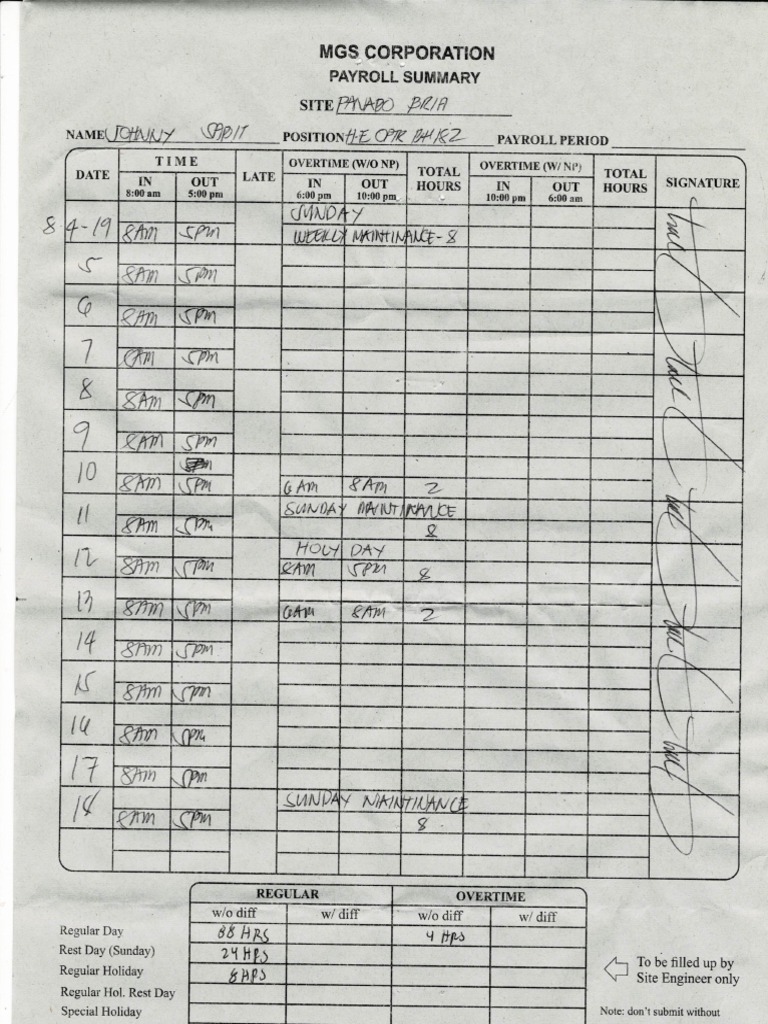 MGS CORPORATION
PAYROLL SUMMARY
SITE PANABO BRIA
NAME JOHNNY SADIT POSITION H.E OPTR BH182 PAYROLL PERIOD
DATE TIME LATE OVERTIME (W/O NP) TOTAL HOURS OVERTIME (W/ NP) TOTAL HOURS SIGNATURE
IN 8:00 am OUT 5:00 pm IN 6:00 pm OUT 10:00 pm IN 10:00 pm OUT 6:00 am
SUNDAY
8 4-19 8AM 5PM WEEKLY MAINTINANCE - 8
5 8AM 5PM
6 8AM 5PM
7 8AM 5PM
8 8AM 5PM
9 8AM 5PM
10 8AM 5PM 6AM 8AM 2
SUNDAY MAINTINANCE
11 8AM 5PM 8
HOLY DAY
12 8AM 5PM 8AM 5PM 8
13 8AM 5PM 6AM 8AM 2
14 8AM 5PM
15 8AM 5PM
16 8AM 5PM
17 8AM 5PM
SUNDAY MAINTINANCE
18 8AM 5PM 8
REGULAR OVERTIME
w/o diff w/ diff w/o diff w/ diff
Regular Day 88 HRS 4 HRS
Rest Day (Sunday) 24 HRS
Regular Holiday 8 HRS
Regular Hol. Rest Day
Special Holiday
To be filled up by
Site Engineer only
Note: don't submit without